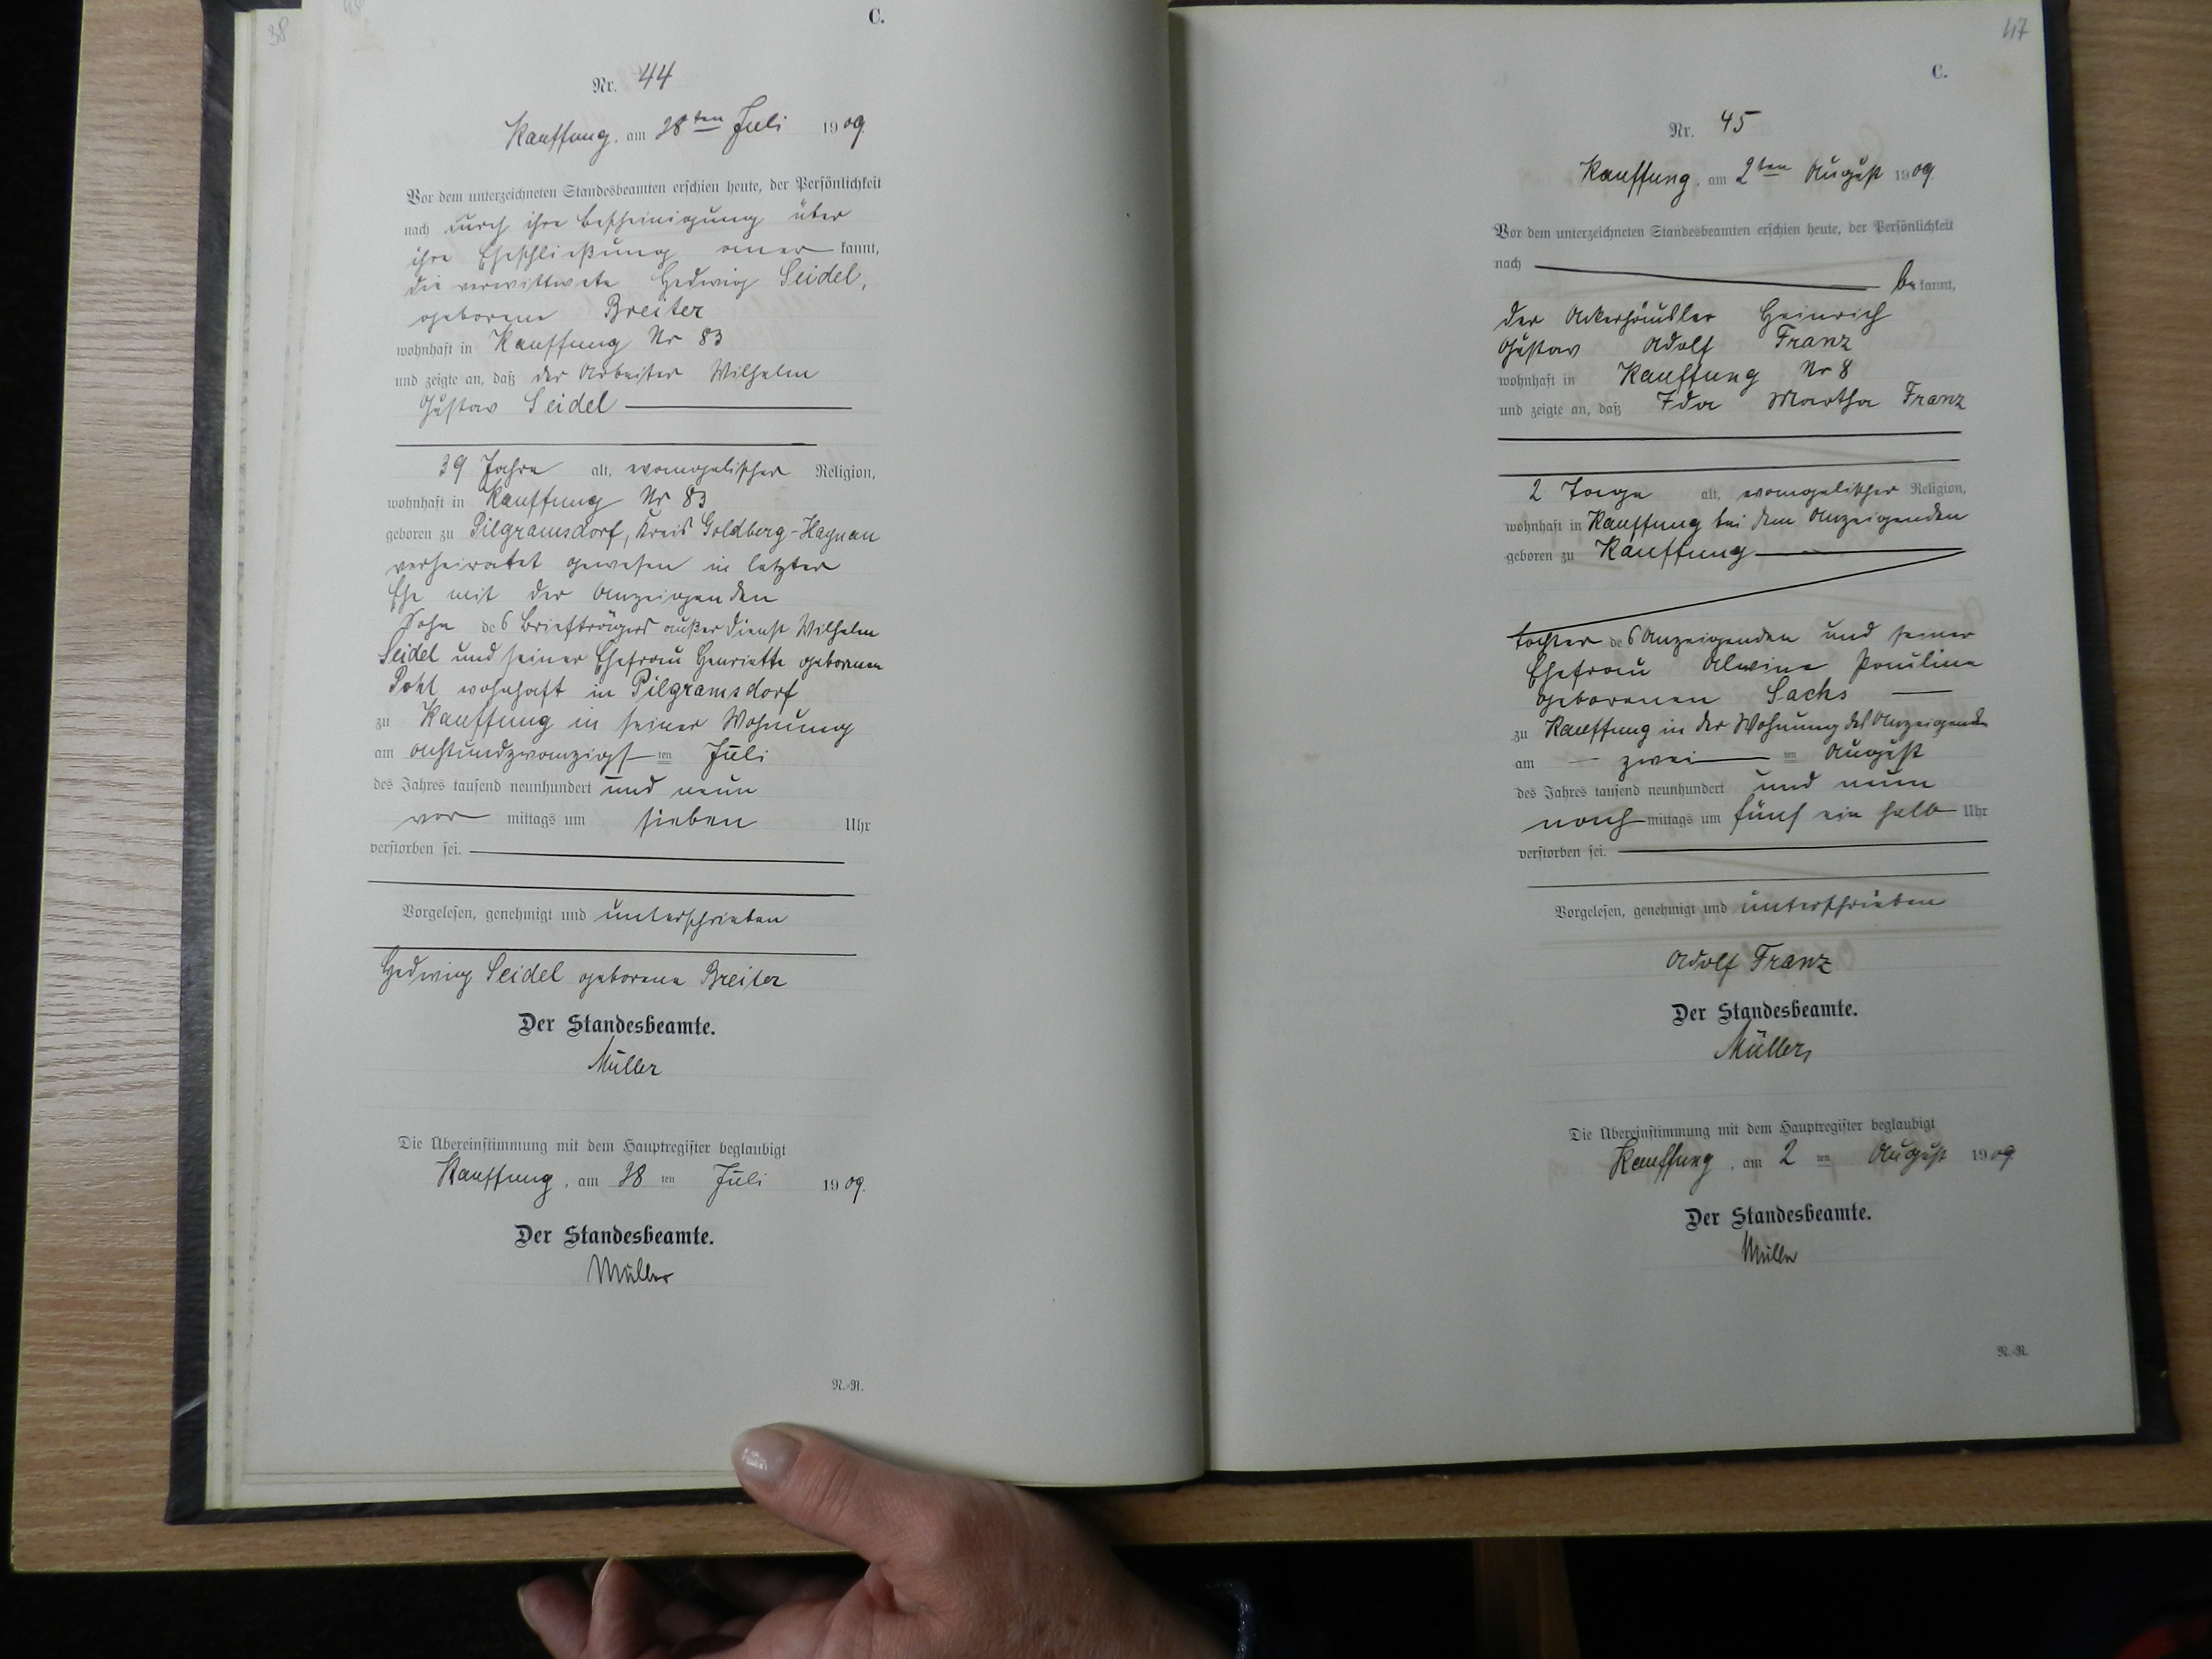 38
C.
Nr. 44
Kauffung, am 28ten Juli 1909.
Vor dem unterzeichneten Standesbeamten erschien heute, der Persönlichkeit
nach durch ihre Bescheinigung über
ihre Eheschließung aner kannt,
die verwittwete Hedwig Seidel,
geborene Breiter
wohnhaft in Kauffung Nr 83
und zeigte an, daß der Arbeiter Wilhelm
Gustav Seidel
39 Jahre alt, evangelischer Religion,
wohnhaft in Kauffung Nr 83
geboren zu Pilgramsdorf, Kreis Goldberg-Haynau
verheiratet gewesen in letzter
Ehe mit der Anzeigenden
Sohn des Briefträgers außer Dienst Wilhelm
Seidel und seiner Ehefrau Henriette geborenen
Pohl wohnhaft in Pilgramsdorf
zu Kauffung in seiner Wohnung
am achtundzwanzigsten Juli
des Jahres tausend neunhundert und neun
vor mittags um sieben Uhr
verstorben sei.
Vorgelesen, genehmigt und unterschrieben
Hedwig Seidel geborene Breiter
Der Standesbeamte.
Müller
Die Übereinstimmung mit dem Hauptregister beglaubigt
Kauffung, am 28 ten Juli 1909.
Der Standesbeamte.
Müller
N.-R.
47
C.
Nr. 45
Kauffung, am 2ten August 1909.
Vor dem unterzeichneten Standesbeamten erschien heute, der Persönlichkeit
nach be kannt,
der Ackerhäusler Heinrich
Gustav Adolf Franz
wohnhaft in Kauffung Nr 8
und zeigte an, daß Ida Martha Franz
2 Tage alt, evangelischer Religion,
wohnhaft in Kauffung bei dem Anzeigenden
geboren zu Kauffung
Tochter des Anzeigenden und seiner
Ehefrau Alwine Pauline
geborenen Sachs
zu Kauffung in der Wohnung des Anzeigenden
am zwei ten August
des Jahres tausend neunhundert und neun
nach mittags um fünf ein halb Uhr
verstorben sei.
Vorgelesen, genehmigt und unterschrieben
Adolf Franz
Der Standesbeamte.
Müller
Die Übereinstimmung mit dem Hauptregister beglaubigt
Kauffung, am 2 ten August 1909
Der Standesbeamte.
Müller
N.-R.